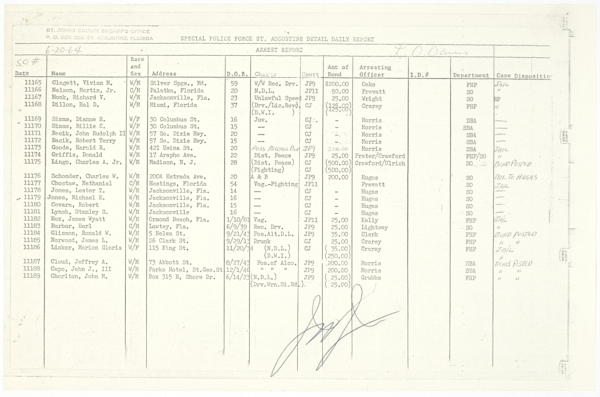 ST. JOHNS COUNTY SHERIFF'S OFFICE
ST. AUGUSTINE, FLORIDA
SPECIAL POLICE FORCE ST. AUGUSTINE DETAIL DAILY REPORT
6-20-64 ARREST REPORT L. O. Davis
SO# Race and Sex Amt of Bond Arresting Officer
Date Name Address D.O.B. Charge Court I.D.# Department Case Disposition
11165 Clagett, Vivian M. W/M Silver Spgs., Md. 59 W/W Rec. Drv. JP9 $200.00 Oaks FHP JAIL
11166 Nelson, Burtis, Jr. C/M Palatka, Florida 20 N.D.L. JP11 50.00 Prevatt SO "
11167 Monk, Richard V. W/M Jacksonville, Fla. 20 Unlawful Speed JP9 25.00 Wright SO
11168 Dillon, Hal D. W/M Miami, Florida 37 (Drv./Lic.Rev) CJ (125.00) Crarey FHP "
(D.W.I. )
11169 Simms, Dianne B. W/F 30 Columbus St. 16 Juv. CJ - Morris SBA
11170 Simms, Billie C. W/F 30 Columbus St. 15 — — Morris SBA
11171 Bozik, John Rudolph II W/M 57 So. Dixie Hwy. 20 — — Morris SBA
11172 Bozik, Robert Terry W/M 57 So. Dixie Hwy. 15 — — Morris SBA
11173 Goode, Harold R. W/M 421 Usina St. 20 JP9 Morris SBA JAIL
11174 Griffis, Donald W/M 17 Aragho Ave. 22 Dist. Peace JP9 25.00 FHP/SO "
11175 Lingo, Charles A. Jr. W/M Madison, N. J. 20 (Dist. Peace) CJ (500.00) Crawford/Ulrich SO BOND POSTED
(Fighting) (500.00)
11176 Schonder, Charles W. W/M 200A Estrada Ave. 20 A & B JP9 200.00 Hagus SO
11177 Choctaw, Nathaniel C/M Hastings, Florida 54 Vag.-Fighting JP11 Prevatt SO JAIL
11178 Jones, Lester T. W/M Jacksonville, Fla. 14 — — Hagus SO —
11179 Jones, Michael E. W/M Jacksonville, Fla. 16 — — Hagus SO —
11180 Cowara, Robert W/M Jacksonville, Fla. 15 — — Hagus SO —
11181 Lynch, Stanley S. W/M Jacksonville 16 — — Hagus SO —
11182 Nox, James Wyatt W/M Ormond Beach, Fla. 1/10/01 Vag. JP11 25.00 Kelly FHP JAIL
11183 Barber, Earl C/M Lawtey, Fla. 6/9/39 Rec. Drv. JP9 25.00 Lightsey SO "
11184 Glisson, Ronald W. W/M 5 Reles St. 9/21/43 Pos.Alt.D.L. JP9 35.00 Clark FHP BOND POSTED
11185 Norwood, James L. W/M 26 Clark St. 9/29/13 Drunk CJ 25.00 Crarey FHP " "
11186 Linker, Marion Gloria W/F 115 King St. 11/20/34 (N.D.L.) CJ ( 35.00) Crarey FHP JAIL
(D.W.I.) (250.00)
11187 Cloud, Jeffrey A. W/M 73 Abbott St. 8/27/43 Pos.of Alco. JP9 200.00 Morris SBA BOND POSTED
11188 Capo, John J., III W/M Parks Hotel, St.Geo.St 12/1/40 " " " JP9 200.00 Morris SBA " "
11189 Charlton, John M. W/M Box 315 E, Shore Dr. 6/14/23 (N.D.L.) JP9 ( 25.00) Grubbs FHP " "
(Drv.Wrn.Sl.Rd.) ( 25.00)